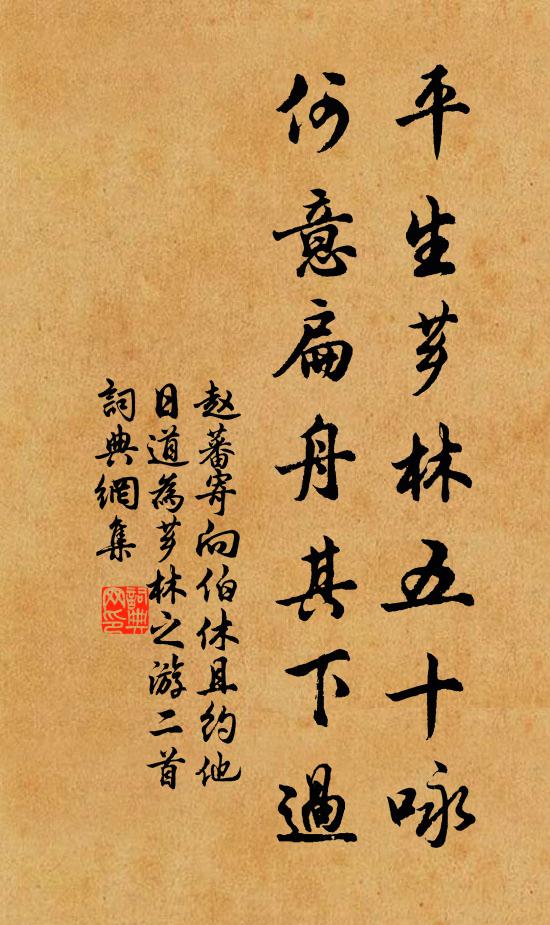 平生芗林五十咏
何意扁舟其下過
赵蕃寄向伯休且約他
日道為芗林之游二首
詞典網集
詞典
网印